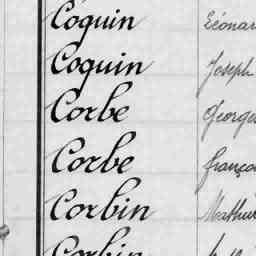 Coquin Léonar
Coquin Joseph
Corbe Georges
Corbe franço
Corbin Mathur
Corbin